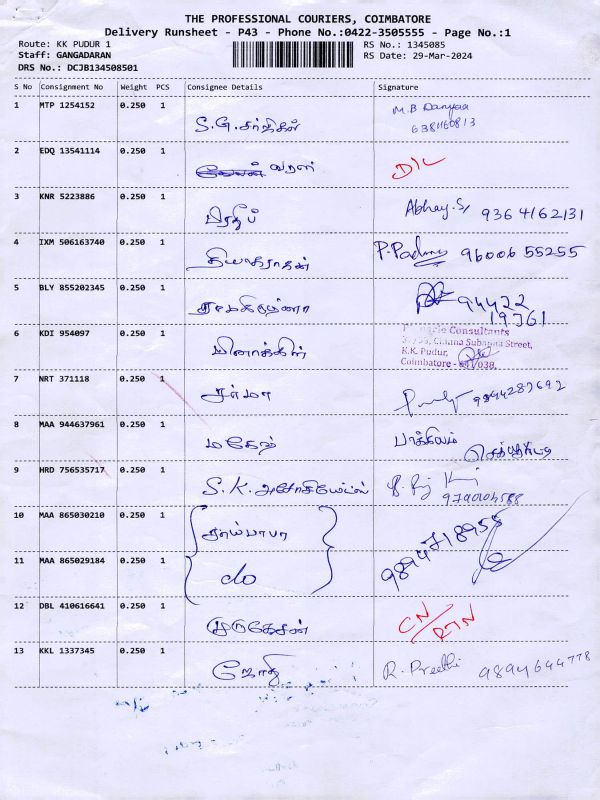 THE PROFESSIONAL COURIERS, COIMBATORE
Delivery Runsheet - P43 - Phone No.:0422-3505555 - Page No.:1
Route: KK PUDUR 1 RS No.: 1345085
Staff: GANGADARAN RS Date: 29-Mar-2024
DRS No.: DCJB134508501
S No Consignment No Weight PCS Consignee Details Signature
1 MTP 1254152 0.250 1 S.G. M.B
6381160813
2 EDQ 13541114 0.250 1 வறள் D/L
3 KNR 5223886 0.250 1 பிரதீப் Abhay.S, 9364162131
4 IXM 506163740 0.250 1 தியாகராதன் P.Padma 96006 55255
5 BLY 855202345 0.250 1 ராமகிருஷ்ணா 94422
19761
6 KDI 954097 0.250 1 மினாக்கிள் Consultants
Chinna Subanna Street,
K.K. Pudur,
Coimbatore - 641/038.
7 NRT 371118 0.250 1 சர்மா
8 MAA 944637961 0.250 1 மகேஷ் பாக்கியம்
9 HRD 756535717 0.250 1 S.K. அசோசியேட்ஸ்
10 MAA 865030210 0.250 1 சாய்பாபா 9894718958
11 MAA 865029184 0.250 1 do
12 DBL 410616641 0.250 1 முருகேசன் CN/RTN
13 KKL 1337345 0.250 1 ஜோதி R. Preethi 9894644778